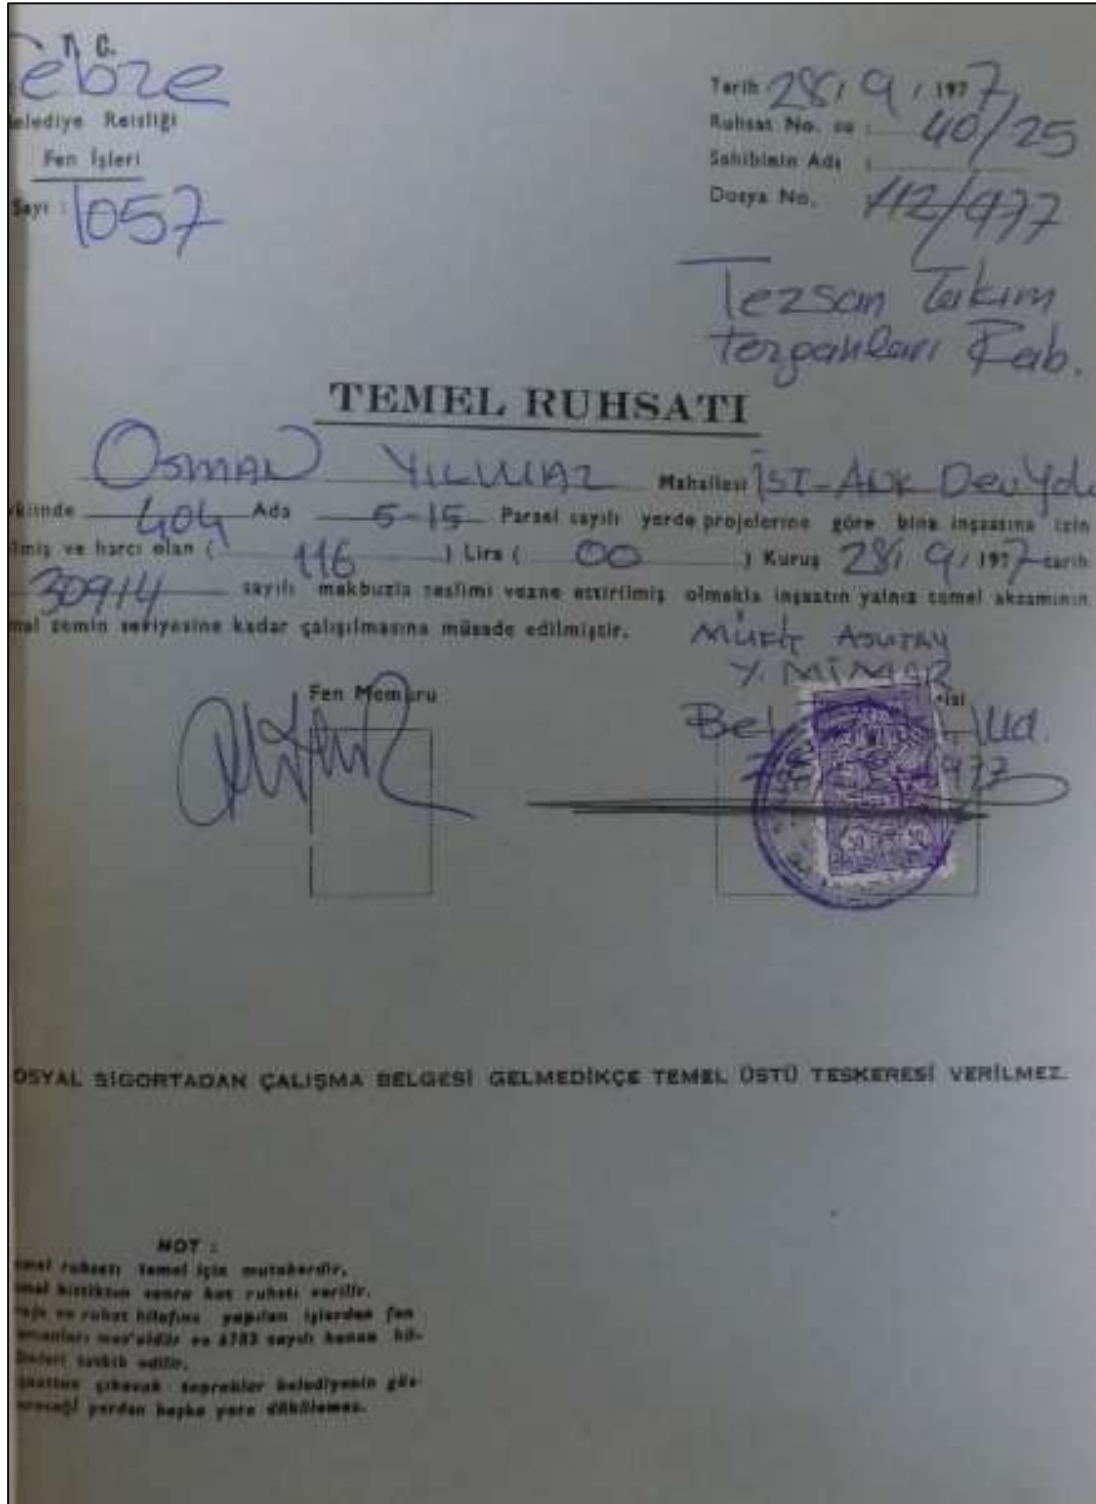 T. C.
Gebze
Belediye Reisliği
Fen İşleri
Sayı : 1057
Tarih 28/9/1977
Ruhsat No. su : 40/25
Sahibinin Adı :
Dosya No. 112/977
Tezsan Takım
Tezgahları Fab.
TEMEL RUHSATI
Osman YILMAZ Mahallesi İST-ANK Dev Yolu
vkiinde 404 Ada 5-15 Parsel sayılı yerde projelerine göre bina inşaatına izin
ilmiş ve harcı olan ( 116 ) Lira ( 00 ) Kuruş 28/9/1977 tarih
30914 sayılı makbuzla teslimi vezne ettirilmiş olmakla inşaatın yalnız temel aksamının
mal zemin seviyesine kadar çalışılmasına müsade edilmiştir.
MÜFİT
Y. MİMAR
Fen Memuru
isi
Bel Müd.
1977
OSYAL SİGORTADAN ÇALIŞMA BELGESİ GELMEDİKÇE TEMEL ÜSTÜ TESKERESİ VERİLMEZ.
NOT :
emel ruhsatı temel için muteberdir.
emel bittikten sonra kat ruhsatı verilir.
roje ve ruhsat hilafına yapılan işlerden fen
emanları mes'uldür ve 6785 sayılı kanun hü-
ümleri tatbik edilir.
şaattan çıkacak topraklar belediyenin gös-
ereceği yerden başka yere dökülemez.